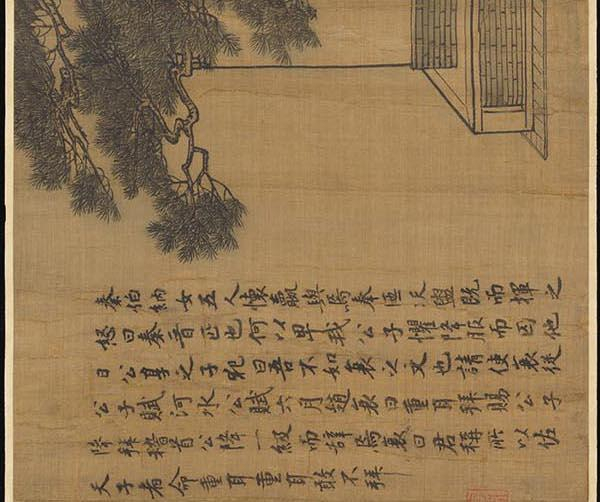 秦伯納女五人懷嬴與焉奉匜沃盥既而揮之
怒曰秦晉匹也何以卑我公子懼降服而囚他
日公享之子犯曰吾不如衰之文也請使衰從
公子賦河水公賦六月趙衰曰重耳拜賜公子
降拜稽首公降一級而辭焉衰曰君稱所以佐
天子者命重耳重耳敢不拜